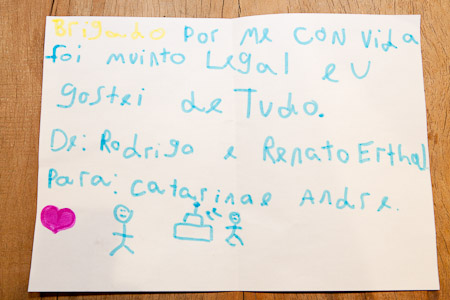 Brigado Por me CONVida
foi muinto Legal eu
gostei de Tudo.
De: Rodrigo e Renato Erthal
Para: Catarina e Andre.